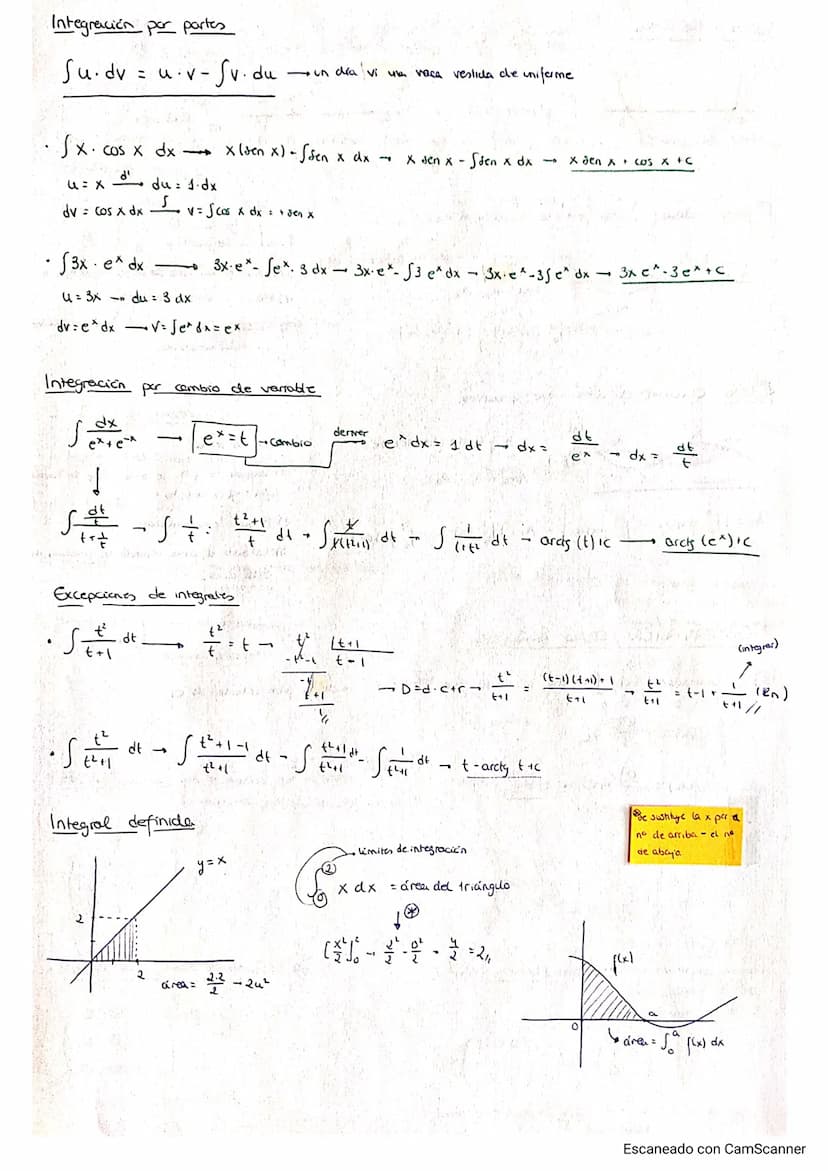 Integración por partes
∫u·dv = u·v - ∫v·du → un día vi una vaca vestida de uniforme
· ∫x·cos x dx → x(sen x) - ∫sen x dx → x sen x - ∫sen x dx → x sen x + cos x + C
u = x → d' du = 1·dx
dv = cos x dx → ∫ v = ∫cos x dx = + sen x
· ∫3x·eˣ dx → 3x·eˣ - ∫eˣ·3 dx → 3x·eˣ - ∫3 eˣ dx → 3x·eˣ - 3∫eˣ dx → 3x eˣ - 3eˣ + C
u = 3x → du = 3 dx
dv = eˣ dx → v = ∫eˣ dx = eˣ
Integración por cambio de variable
∫ dx/(eˣ+e⁻ˣ) → eˣ = t → cambio derivar eˣ dx = 1 dt → dx = dt/eˣ → dx = dt/t
↓
∫ (dt/t)/(t+1/t) → ∫ 1/t : (t²+1)/t dt → ∫ t/(t(t²+1)) dt → ∫ 1/(1+t²) dt → arctg (t)+C → arctg (eˣ)+C
Excepciones de integrales
· ∫ t²/(t+1) dt → t²/t = t → t² |t+1
-t²-t t-1
-t
t+1
1
(integrar)
→ D=d·c+r → t²/(t+1) = ((t-1)(t+1)+1)/(t+1) → t²/(t+1) = t-1+ 1/(t+1) (Ln)
· ∫ t²/(t²+1) dt → ∫ (t²+1-1)/(t²+1) dt → ∫ (t²+1)/(t²+1) dt - ∫ 1/(t²+1) dt → t - arctg t + C
Integral definida
y=x
2
2
área = 2·2/2 → 2u²
Límites de integración
∫₀² x dx = área del triángulo
↓ *
[x²/2]₀² → 2²/2 - 0²/2 → 4/2 = 2
* se sustituye la x por el
nº de arriba - el nº
de abajo
f(x)
a
0
área = ∫₀ᵃ f(x) dx
Escaneado con CamScanner